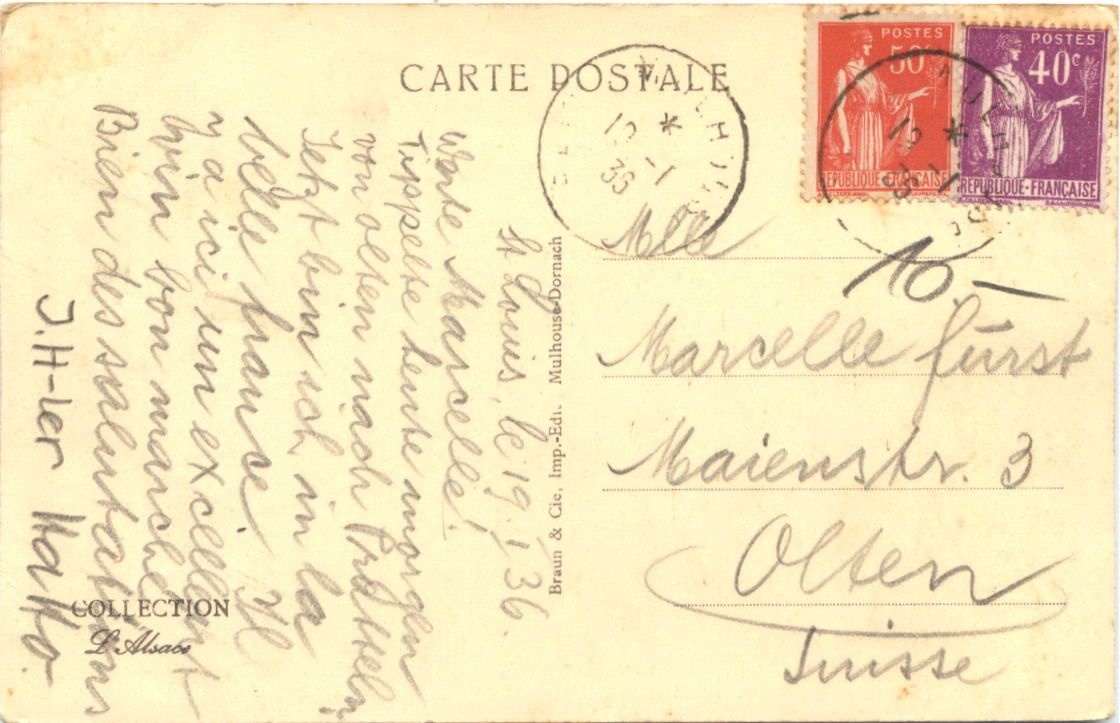 CARTE POSTALE
POSTES
50c
RÉPUBLIQUE-FRANÇAISE
POSTES
40c
RÉPUBLIQUE-FRANÇAISE
19 -1
36
19 -1
36
St Louis, le 19.1.36.
Werte Marcelle!
Tippelte heute morgen
von Olten nach Pratteln,
Jetzt bin ich in la
belle france. Il
y a ici un excellent
vin bon marché.
Bien des salutations
J.H-ler
COLLECTION
L'Alsace
Braun & Cie, Imp.-Edit. Mulhouse-Dornach
Mlle
10 —
Marcelle Fürst
Maienstr. 3
Olten
Suisse